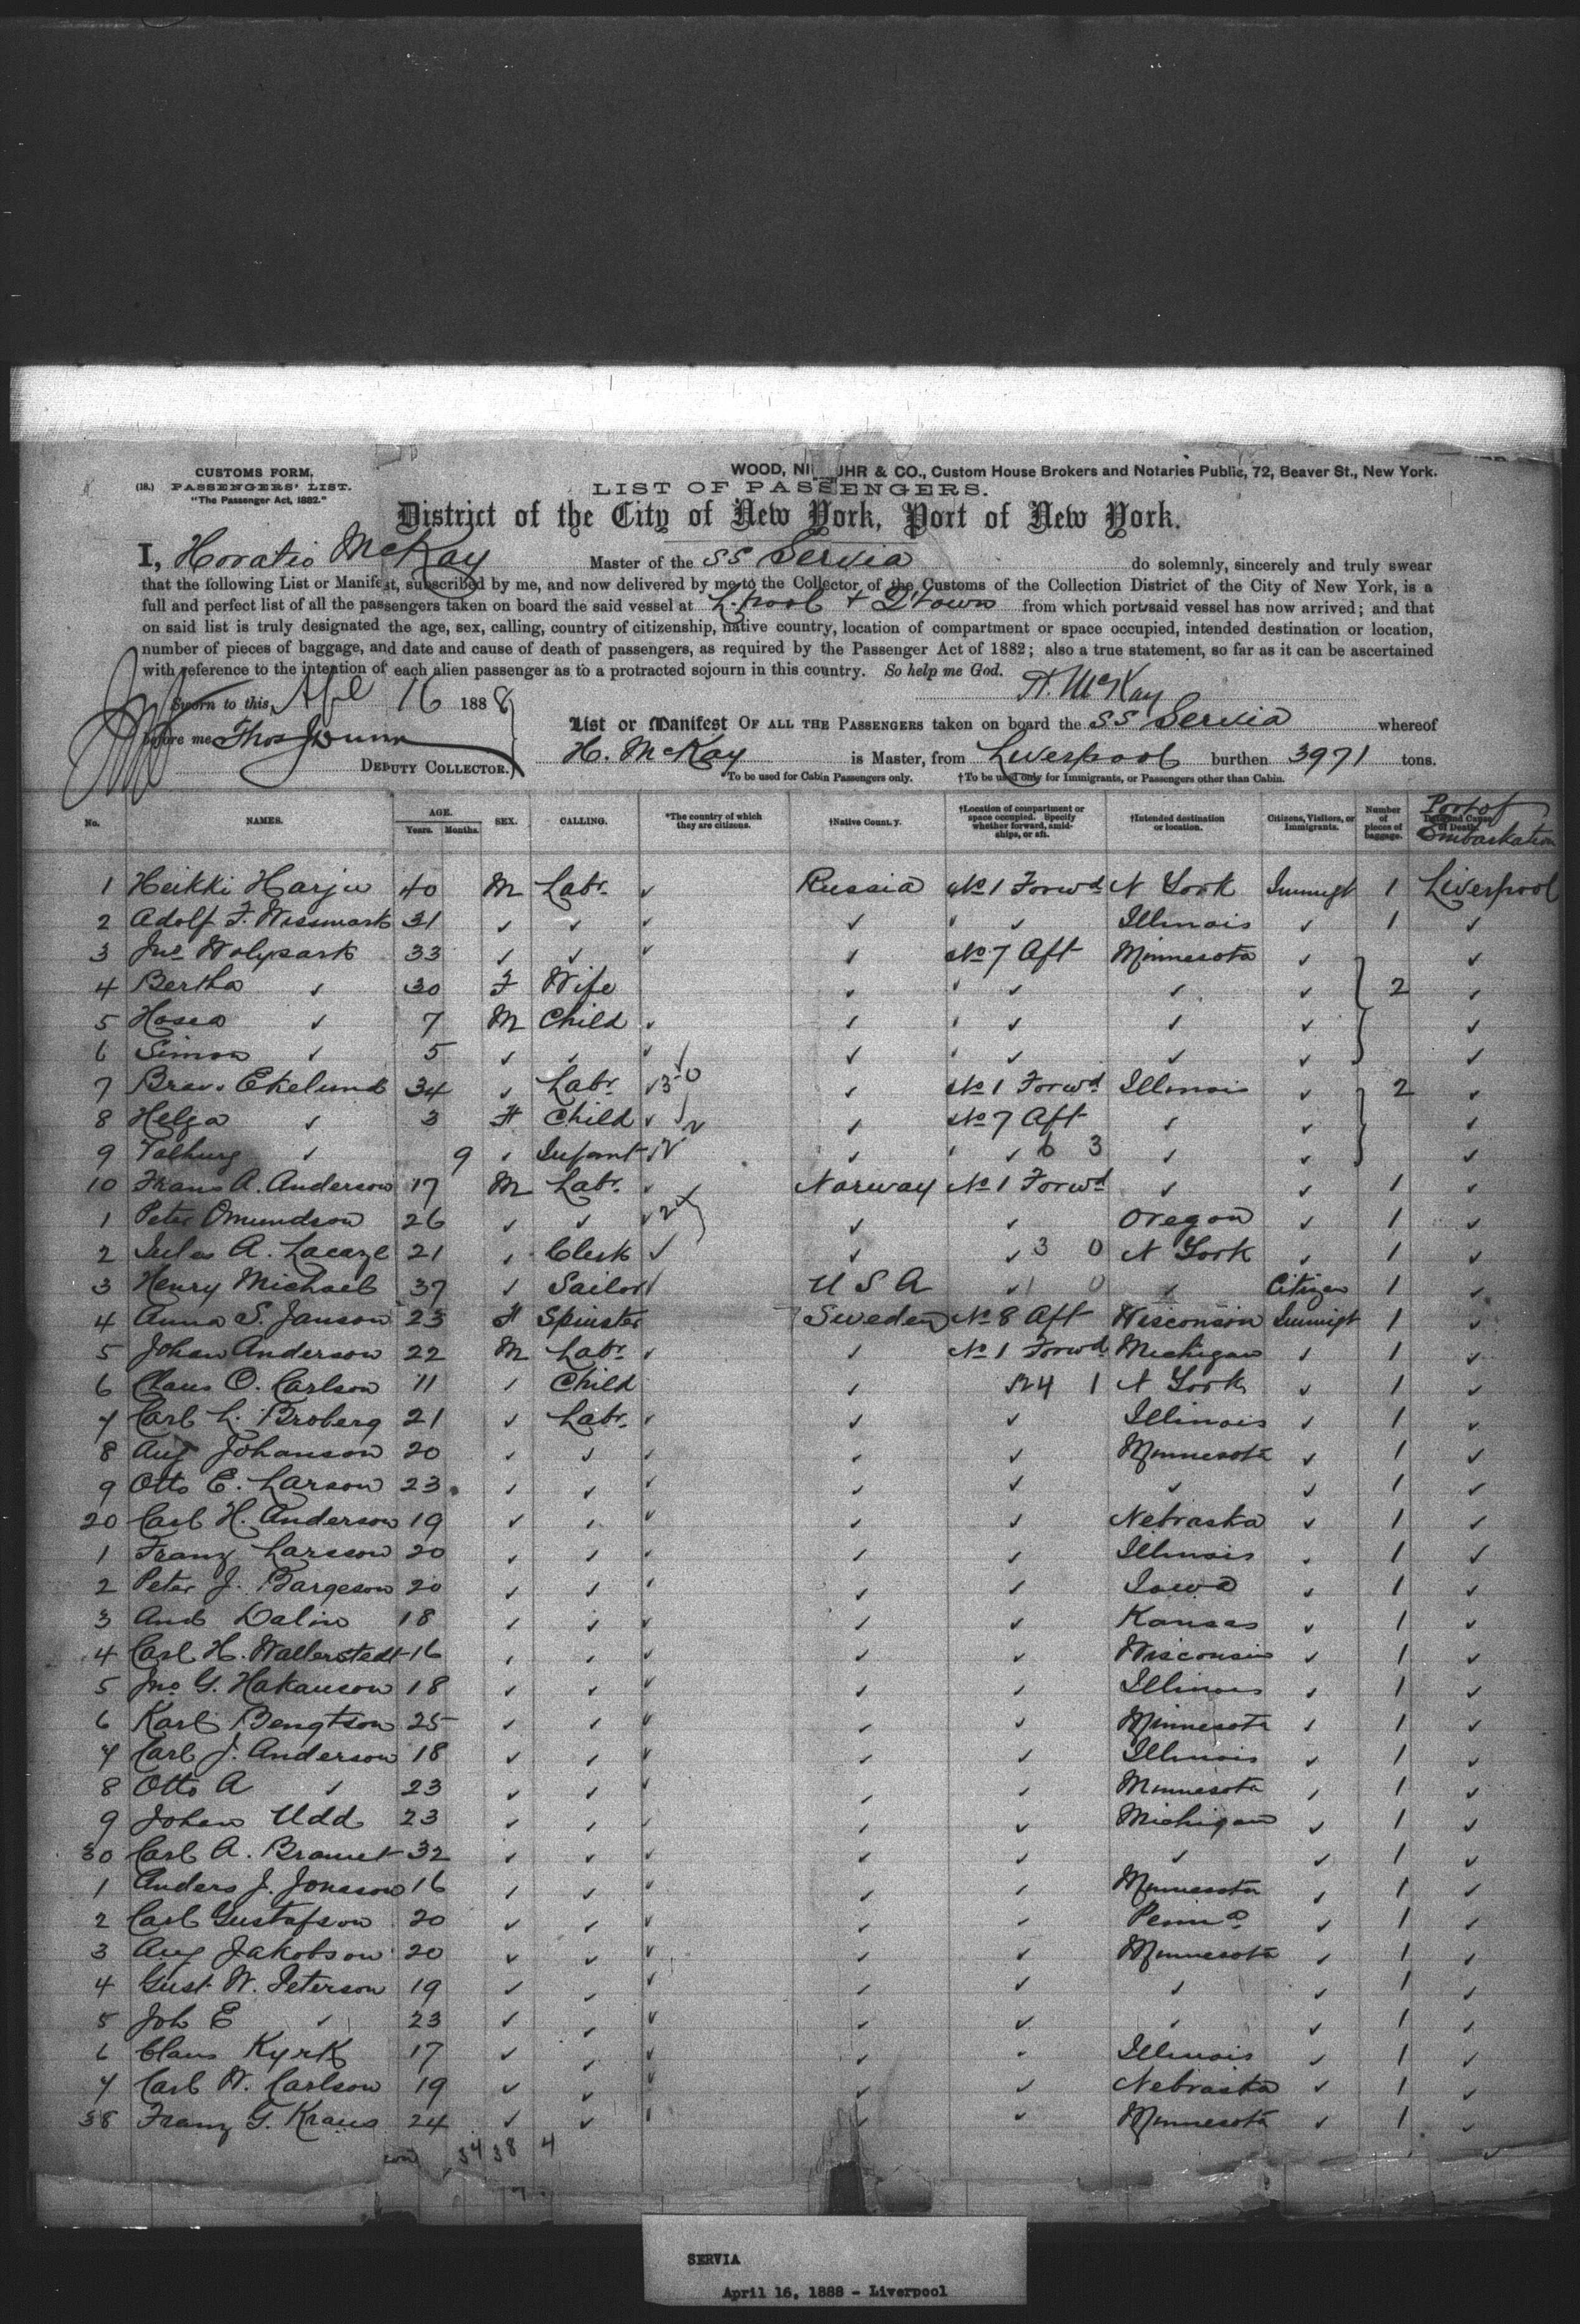 CUSTOMS FORM.
(18.) PASSENGERS' LIST.
"The Passenger Act, 1882."
WOOD, NI UHR & CO., Custom House Brokers and Notaries Public, 72, Beaver St., New York.
LIST OF PASSENGERS.
District of the City of New York, Port of New York.
I, Horatio McKay Master of the SS Servia do solemnly, sincerely and truly swear
that the following List or Manifest, subscribed by me, and now delivered by me to the Collector of the Customs of the Collection District of the City of New York, is a
full and perfect list of all the passengers taken on board the said vessel at L.pool + Q'town from which port said vessel has now arrived; and that
on said list is truly designated the age, sex, calling, country of citizenship, native country, location of compartment or space occupied, intended destination or location,
number of pieces of baggage, and date and cause of death of passengers, as required by the Passenger Act of 1882; also a true statement, so far as it can be ascertained
with reference to the intention of each alien passenger as to a protracted sojourn in this country. So help me God.
H. McKay
Sworn to this, Apl 16 1888
List or Manifest OF ALL THE PASSENGERS taken on board the SS Servia whereof
before me Thos J Dunn
H. McKay is Master, from Liverpool burthen 3971 tons.
DEPUTY COLLECTOR.
*To be used for Cabin Passengers only. †To be used only for Immigrants, or Passengers other than Cabin.
No. NAMES. AGE. Years. Months. SEX. CALLING. *The country of which they are citizens. †Native Country. †Location of compartment or space occupied. Specify whether forward, amidships, or aft. †Intended destination or location. Citizens, Visitors, or Immigrants. Number of pieces of baggage. Date and Cause of Death. Port of Embarkation
1 Heikki Harju 40 M Labr. ✓ Russia No 1 Forwd N York Immigt 1 Liverpool
2 Adolf F. Wissmark 31 ✓ ✓ ✓ ✓ ✓ Illinois ✓ 1 ✓
3 Jno Wolysark 33 ✓ ✓ ✓ ✓ No 7 Aft Minnesota ✓ ✓
4 Bertha ✓ 30 F Wife ✓ ✓ ✓ ✓ 2 ✓
5 Hosea ✓ 7 M Child ✓ ✓ ✓ ✓ ✓ ✓
6 Simon ✓ 5 ✓ ✓ ✓ ✓ ✓ ✓ ✓ ✓
7 Ekelund 34 ✓ Labr. ✓ 3-0 ✓ No 1 Forwd Illinois ✓ 2 ✓
8 Helga ✓ 3 F Child ✓ ✓ No 7 Aft ✓ ✓ ✓
9 ✓ 9 ✓ Infant ✓ ✓ 6 3 ✓ ✓ ✓
10 Frans A. Anderson 17 M Labr. ✓ Norway No 1 Forwd ✓ ✓ 1 ✓
1 Peter Omundson 26 ✓ ✓ ✓ ✓ ✓ Oregon ✓ 1 ✓
2 Jules A. Lacaze 21 ✓ Clerk ✓ ✓ ✓ 3 0 N York ✓ 1 ✓
3 Henry Michael 37 ✓ Sailor ✓ U S A ✓ 1 0 ✓ Citizen 1 ✓
4 Anna S. Janson 23 F Spinster Sweden No 8 Aft Wisconsin Immigt 1 ✓
5 Johan Anderson 22 M Labr. ✓ ✓ No 1 Forwd Michigan ✓ 1 ✓
6 Claus O. Carlson 11 ✓ Child ✓ 24 1 N York ✓ 1 ✓
7 Carl L. Broberg 21 ✓ Labr. ✓ ✓ ✓ Illinois ✓ 1 ✓
8 Aug Johanson 20 ✓ ✓ ✓ ✓ ✓ Minnesota ✓ 1 ✓
9 Otto E. Larson 23 ✓ ✓ ✓ ✓ ✓ ✓ ✓ 1 ✓
20 Carl H. Anderson 19 ✓ ✓ ✓ ✓ ✓ Nebraska ✓ 1 ✓
1 Franz Larsson 20 ✓ ✓ ✓ ✓ ✓ Illinois ✓ 1 ✓
2 Peter J. Bargeson 20 ✓ ✓ ✓ ✓ ✓ Iowa ✓ 1 ✓
3 And Dalin 18 ✓ ✓ ✓ ✓ ✓ Kansas ✓ 1 ✓
4 Carl H. Wallerstedt 16 ✓ ✓ ✓ ✓ ✓ Wisconsin ✓ 1 ✓
5 Jno G. Hakanson 18 ✓ ✓ ✓ ✓ ✓ Illinois ✓ 1 ✓
6 Karl Bengtson 25 ✓ ✓ ✓ ✓ ✓ Minnesota ✓ 1 ✓
7 Carl J. Anderson 18 ✓ ✓ ✓ ✓ ✓ Illinois ✓ 1 ✓
8 Otto A ✓ 23 ✓ ✓ ✓ ✓ ✓ Minnesota ✓ 1 ✓
9 Johan Udd 23 ✓ ✓ ✓ ✓ ✓ Michigan ✓ 1 ✓
30 Carl A. 32 ✓ ✓ ✓ ✓ ✓ ✓ ✓ 1 ✓
1 Anders J. Jonason 16 ✓ ✓ ✓ ✓ ✓ Minnesota ✓ 1 ✓
2 Carl Gustafson 20 ✓ ✓ ✓ ✓ ✓ Penna ✓ 1 ✓
3 Aug Jakobson 20 ✓ ✓ ✓ ✓ ✓ Minnesota ✓ 1 ✓
4 Gust W. Peterson 19 ✓ ✓ ✓ ✓ ✓ ✓ ✓ 1 ✓
5 Joh E ✓ 23 ✓ ✓ ✓ ✓ ✓ ✓ ✓ 1 ✓
6 Claus Kyrk 17 ✓ ✓ ✓ ✓ ✓ Illinois ✓ 1 ✓
7 Carl W. Carlson 19 ✓ ✓ ✓ ✓ ✓ Nebraska ✓ 1 ✓
38 Franz G. Kraus 24 ✓ ✓ ✓ ✓ ✓ Minnesota ✓ 1 ✓
34 38 4
SERVIA
April 16, 1888 - Liverpool